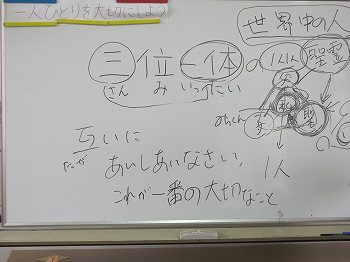 一人ひとりを大切にしよう
世界中の人
三位一体の
聖霊
さん み いったい
互いに
たが
あいしあいなさい、
1人
これが一番の大切なこと